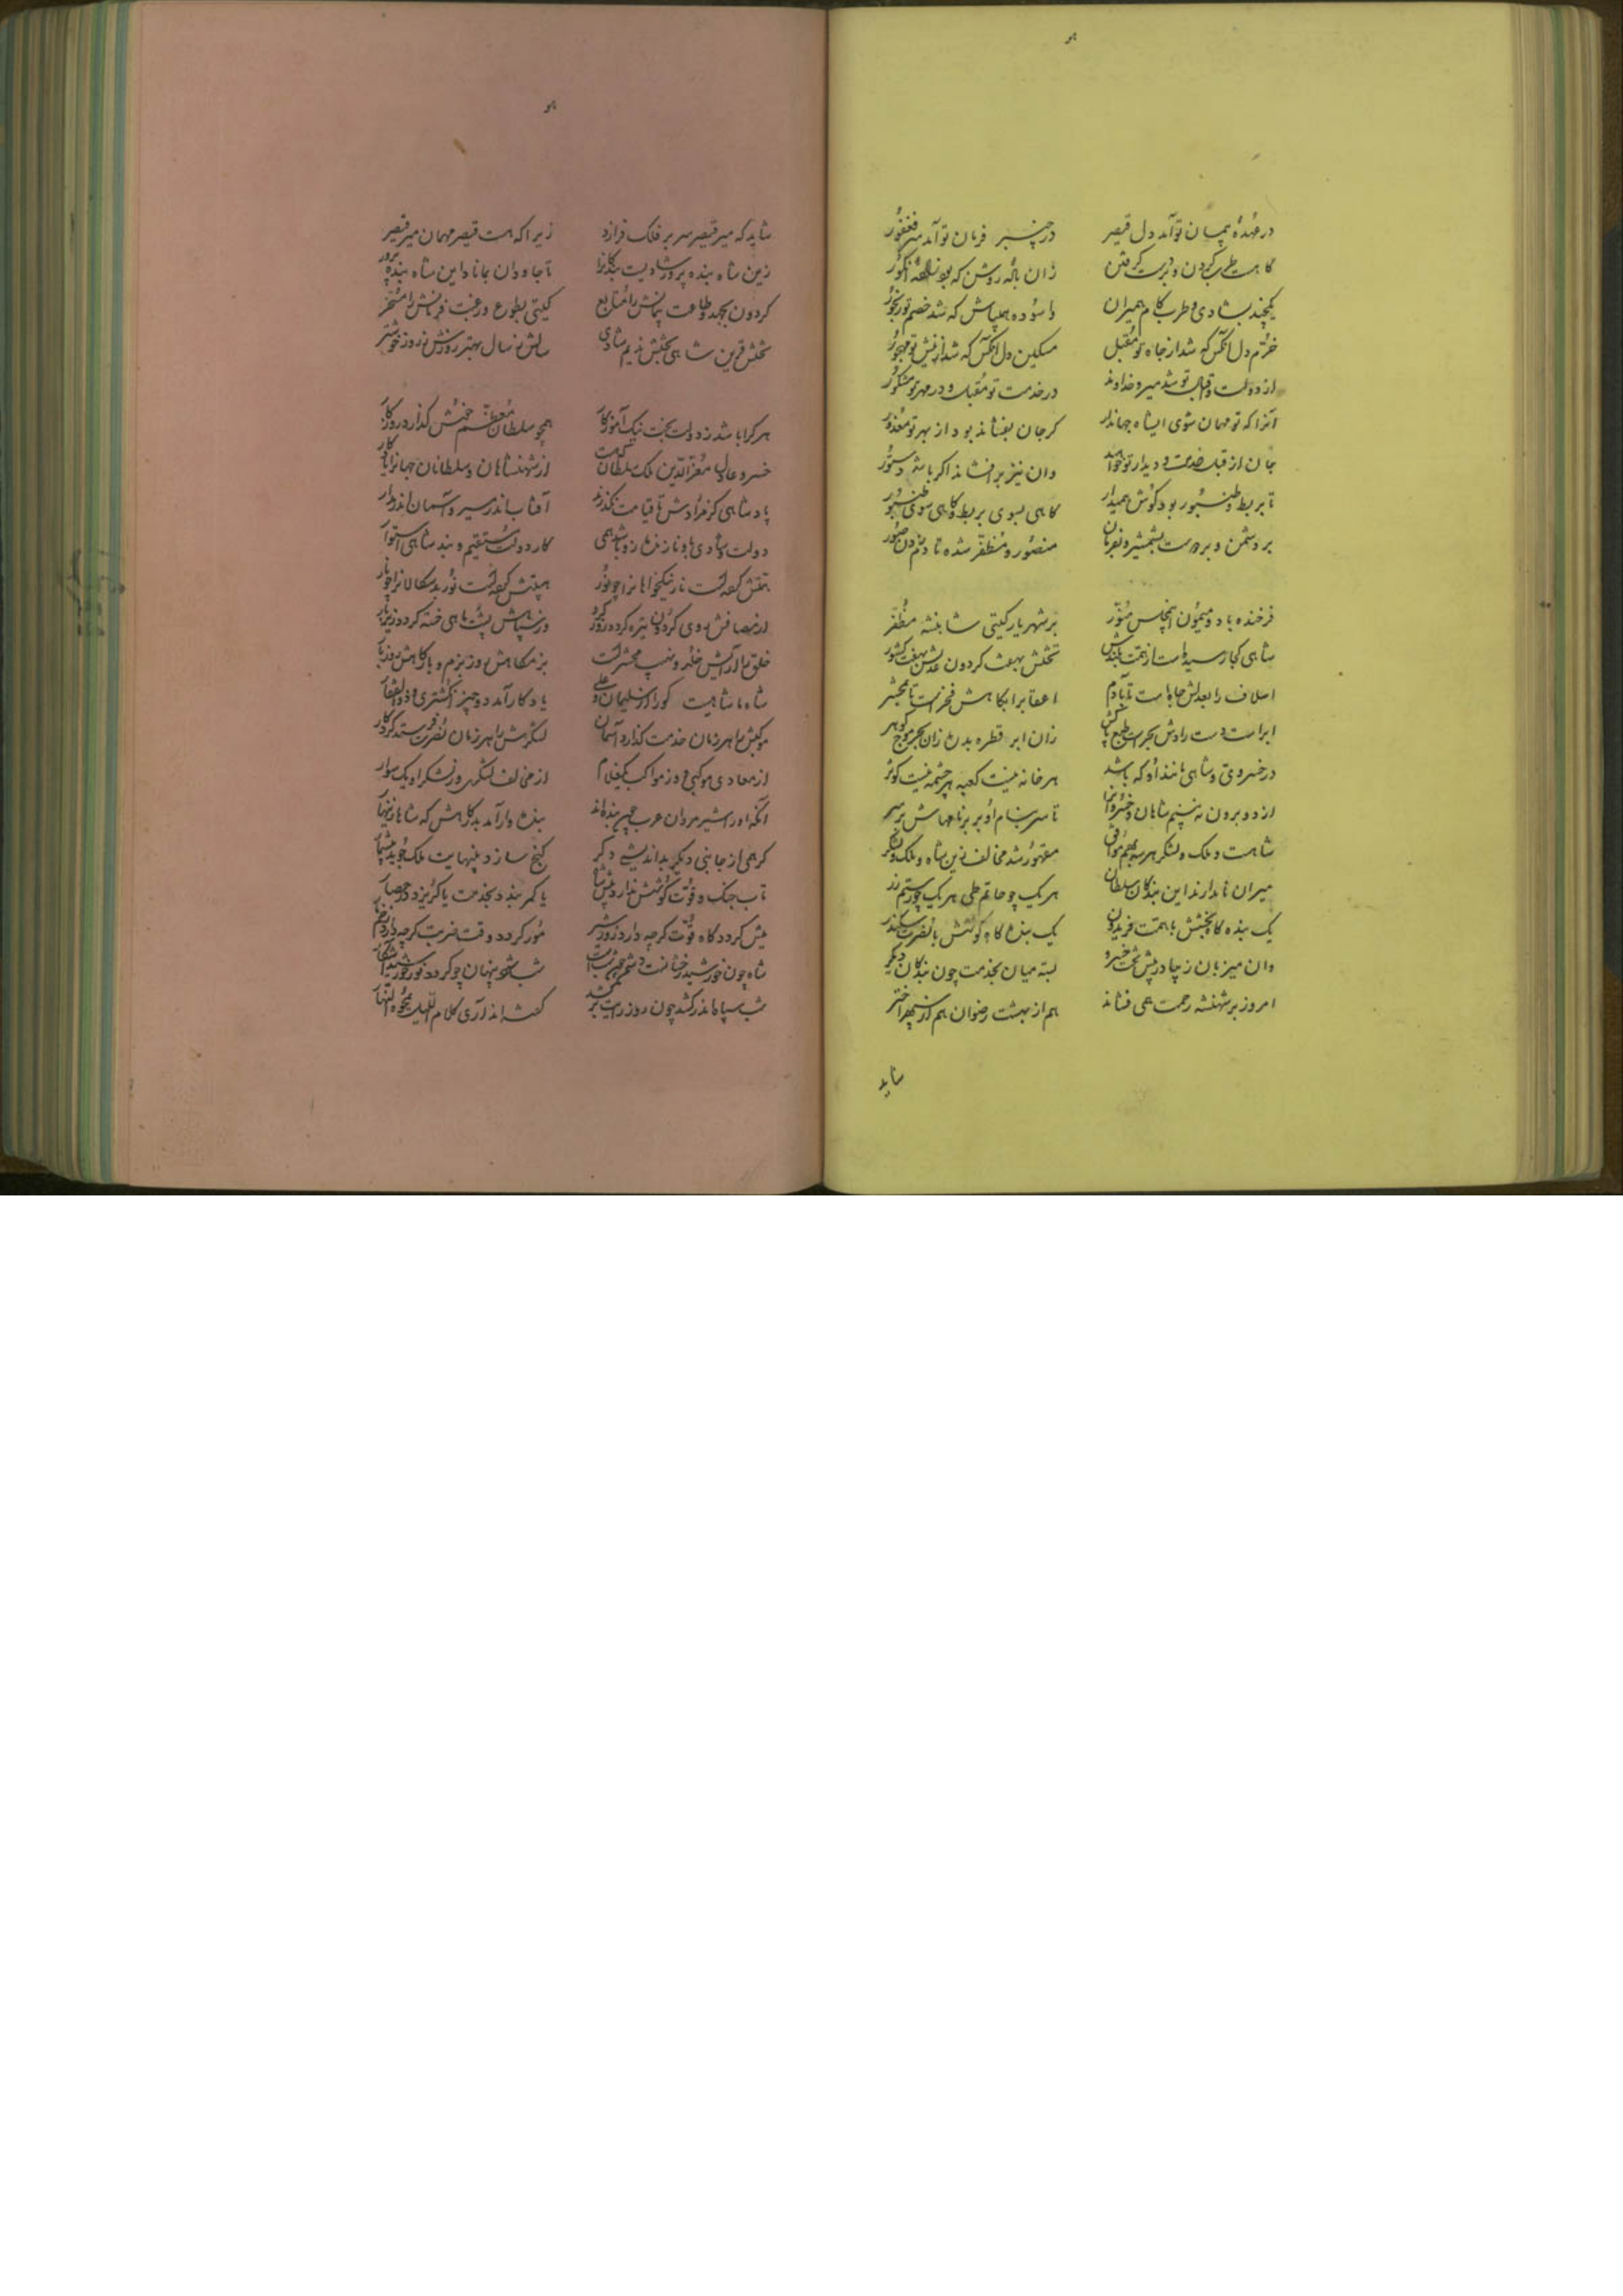 هو
در عهدهٔ پیمان تو آمد دل قیصر در چنبر فرمان تو آمد سر فغفور
گاه است طرب کردن و گرفتن زان بادهٔ روشن که بود انگور
یکچند بشادی و طرب کام همیران واسوده همیباش که شد خصم تو رنجور
خرم دل آنکس که شد از جاه تو مقبل مسکین دل آنکس که شد از پیش تو مهجور
از دولت و اقبال تو شد میر خداوند در خدمت تو مقبل و در مهر تو مشکور
آنرا که تو مهمان شوی ایشاه جهاندار گر جان بفشاند بود از بهر تو معذور
جان از قبل خدمت و دیدار تو خواهد وان نیز برافشاند اگر باشد دستور
تا بربط و طنبور بود گوش همیدار گاهی بسوی بربط و گاهی سوی طنبور
بر دشمن و بر دوست بشمشیر و بفرمان منصور و مظفر شده تا در دمدن صور
فرخنده باد و میمون این مجلس منور بر شهریار گیتی شاهنشه مظفر
شاهی کجا رسیده است از همت بلندش تختش بهفت گردون عدلش بهفت کشور
اسلاف را بعدلش جاه است تا بآدم اعقاب را بگاهش فخر است تا بمحشر
ابر است دست رادش بحر است طبع پاکش زان ابر قطره بدره زان بحر موج گوهر
در خسروی و شاهی مانند او که باشد هر خانه نیست کعبه هر چشمه نیست کوثر
از دو برون نه بینم شاهان و خسروانرا تا سر بنام او بر برنامهاش بر سر
شاهست و ملک و لشکر هر سه بهم موافق مقهور شد مخالف زین شاه و ملک و لشکر
میران نامدارند این بندگان سلطان هر یک چو حاتم طی هر یک چو رستم زر
یک بنده گاه بخشش با همت فریدون یک بنده گاه کوشش با نصرت سکندر
وان میزبان زچا در پیش تخت خسرو بسته میان بخدمت چون بندگان دیگر
امروز بر شهنشه رحمت همی فشاند هم از بهشت رضوان هم از سپهر اختر
شاید
هو
شاید که میر قیصر سر بر فلک فرازد زیرا که هست قیصر مهمان میر قیصر
زین شاه بنده پرور شادیست بندگانرا تا جاودان بماناد این شاه بنده پرور
گردون بجهد و طاعت پیمانش را متابع گیتی بطوع و رغبت فرمانش را مسخر
تختش قرین شاهی بختش ندیم شادی سالش ز سال بهتر روزش ز روز خوشتر
هر کرا باشد ز دولت بخت نیک آموزگار همچو سلطان معظم خوش گذارد روزگار
خسرو عادل معزالدین ملک سلطان که هست از شهنشاهان و سلطانان جهانرا یادگار
پادشاهی کز مرادش تا قیامت نگذرند آفتاب اندر مسیر و آسمان اندر مدار
دولت و شادی بدو نازند ازو باشد همی کار دولت مستقیم و بند شاهی استوار
تیغش گفته است نار نیکخواهانرا چو نور هیبتش گفته است نور بدسگالانرا چو نار
از مصافش روی گردون تیره گردد روز گرد وز سپاهش پشت ماهی خسته گردد زیر بار
خلق را آرایش خلد و نهیب محشر است بزمگاهش روز بزم و بارگاهش روز بار
شاه ما شاهیست کو را از سلیمان و علی یادگار آمد دو چیز انگشتری و ذوالفقار
موکبش را هر زمان خدمت گذارد آسمان لشکرش را هر زمان نصرت فرستد کردگار
از معادی موکبی و ز مواکب یکغلام از مخالف لشکری و ز لشکر او یک سوار
آنکه او را شیر مردان عرب چون بنده‌اند بنده وار آمد بدرگاهش که شاها زینهار
گر همی از جانبی دیگر بداندیشی دگر گنج سازد بینهایت ملک جوید بیشمار
تاب جنگ و قوت کوشش ندارد پیش شاه یا کمر بندد بخدمت یا گریزد در حصار
میش گردد گاه قوت گرچه دارد زور شیر مور گردد وقت ضربت گرچه دارد زخم مار
شاه چون خورشید رخشانست دشمن چون شب است شب شود پنهان چو گردد نور خورشید آشکار
شب سپاه اندر کشد چون روز رایت برکشد گفته‌اند آری کلام اللیل یمحوه النهار